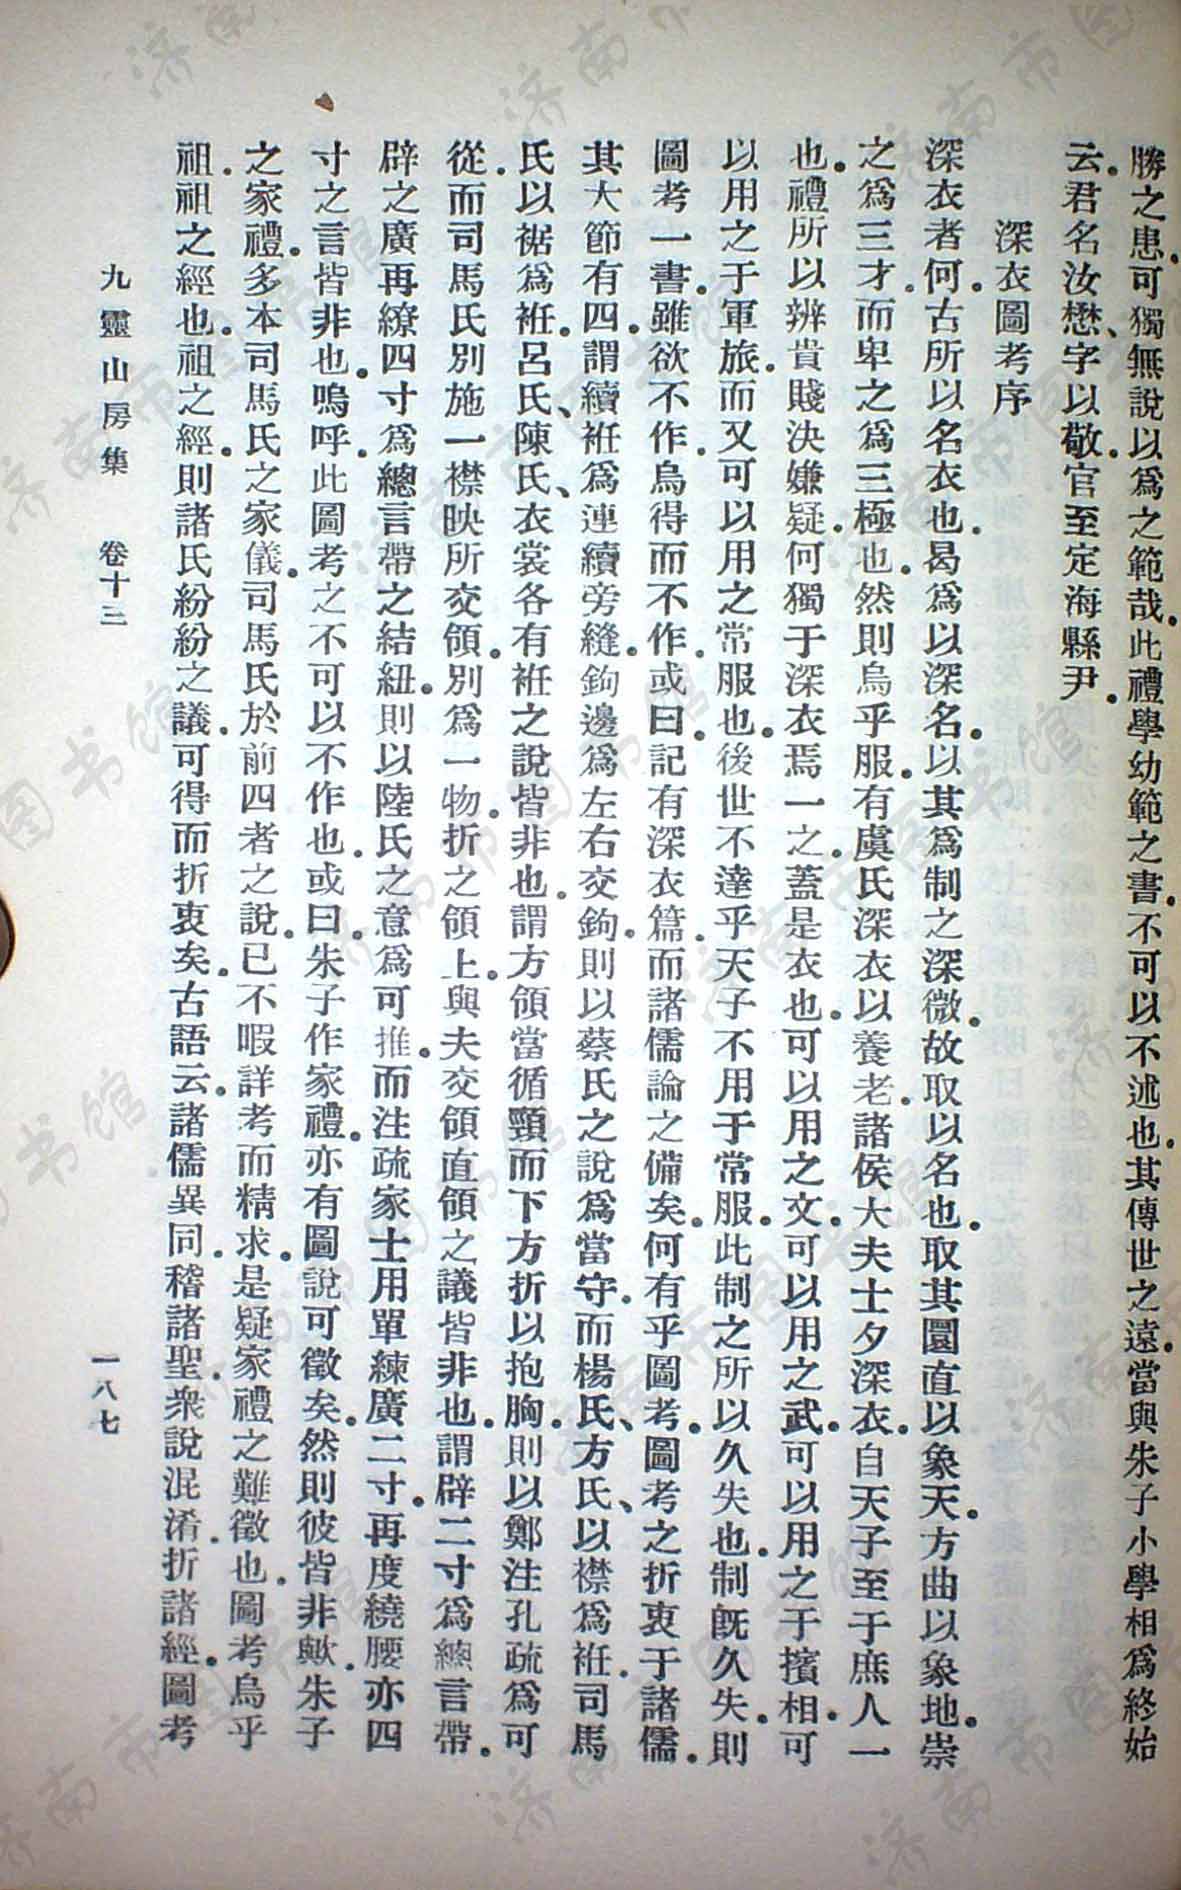 勝之患。可獨無說以爲之範哉。此禮學幼範之書。不可以不述也。其傳世之遠。當與朱子小學相爲終始
云。君名汝懋、字以敬。官至定海縣尹。
深衣圖考序
深衣者何。古所以名衣也。曷爲以深名。以其爲制之深微。故取以名也。取其圜直以象天。方曲以象地。崇
之爲三才。而卑之爲三極也。然則烏乎服。有虞氏深衣以養老。諸侯大夫士夕深衣。自天子至于庶人一
也。禮所以辨貴賤決嫌疑。何獨于深衣焉一之。蓋是衣也。可以用之文。可以用之武。可以用之于擯相。可
以用之于軍旅。而又可以用之常服也。後世不達乎天子不用于常服。此制之所以久失也。制旣久失。則
圖考一書。雖欲不作。烏得而不作。或曰。記有深衣篇。而諸儒論之備矣。何有乎圖考。圖考之折衷于諸儒。
其大節有四。謂續衽爲連續旁縫。鉤邊爲左右交鉤。則以蔡氏之說爲當守。而楊氏、方氏、以襟爲衽。司馬
氏以裾爲衽。呂氏、陳氏、衣裳各有衽之說。皆非也。謂方領當循頸而下。方折以抱胸。則以鄭注孔疏爲可
從。而司馬氏別施一襟。映所交領。別爲一物。折之領上。與夫交領直領之議。皆非也。謂辟二寸爲總言帶。
辟之廣。再繚四寸爲總言帶之結紐。則以陸氏之意爲可推。而注疏家士用單練廣二寸。再度繞腰亦四
寸之言皆非也。嗚呼。此圖考之不可以不作也。或曰。朱子作家禮。亦有圖說可徵矣。然則彼皆非歟。朱子
之家禮。多本司馬氏之家儀。司馬氏於前四者之說。已不暇詳考而精求。是疑家禮之難徵也。圖考烏乎
祖。祖之經也。祖之經。則諸氏紛紛之議。可得而折衷矣。古語云。諸儒異同。稽諸聖。衆說混淆。折諸經。圖考
九靈山房集　卷十三　一八七